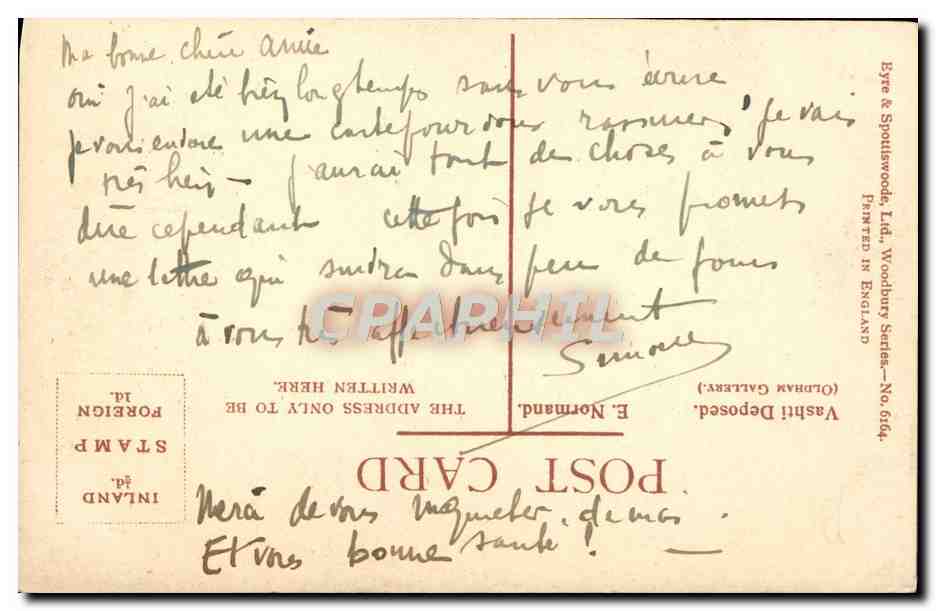 Ma bonne chère Annie
oui j'ai été bien longtemps sans vous écrire
je vous envoie une carte pour vous rassurer, je vais
très bien — j'aurai tout des choses à vous
dire cependant cette fois je vous promets
une lettre qui suivra dans peu de jours
à vous très affectueusement
Simone
Eyre & Spottiswoode, Ltd., Woodbury Series.—No. 6164.
PRINTED IN ENGLAND
CPARPHIL
Vashti Deposed. E. Normand.
(OLDHAM GALLERY.)
THE ADDRESS ONLY TO BE
WRITTEN HERE.
POST CARD
INLAND
½d.
STAMP
FOREIGN
1d.
Merci de vous inquiéter de mas
Et vous bonne santé ! —